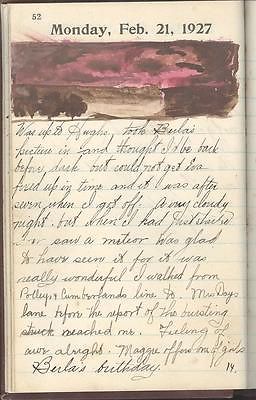 52
Monday, Feb. 21, 1927
Was up to Dwights, took Beula's
picture in and thought I'd be back
before dark but could not get Eva
fixed up in time and it was after
seven when I got off. A very cloudy
night. but when I had just started
saw a meteor was glad
to have seen it for it was
really wonderful I walked from
Polleys + Cumberlands line to Mrs Days
lane before the report of the bursting
struck reached me. Feeling of
awe alright. Maggie off on
Beula's birthday. 14.